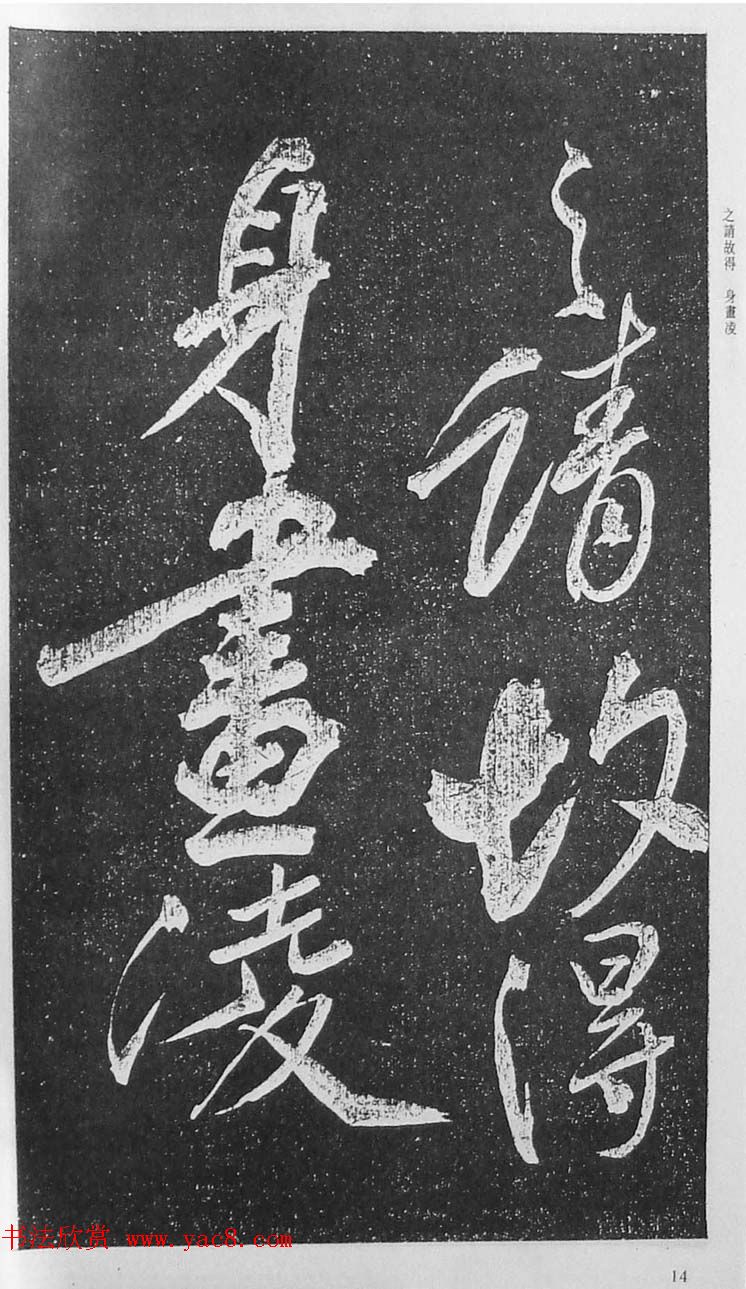 之請故得
身畫凌
之請故得 身畫凌
书法欣赏 www.yac8.com
14